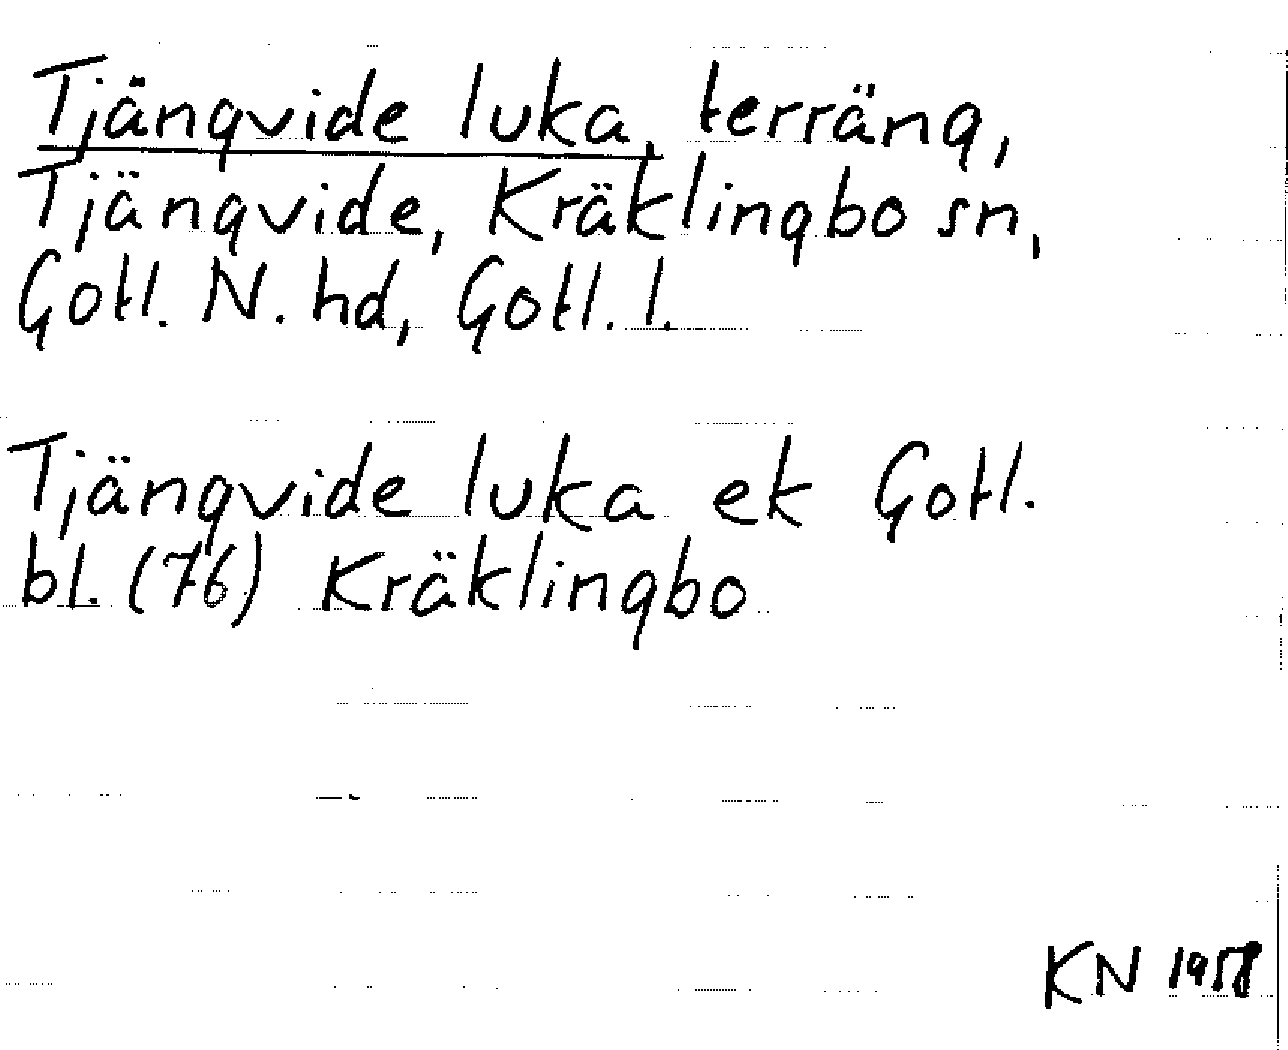 Tjängvide luka, terräng,
Tjängvide, Kräklingbo sn,
Gotl. N. hd, Gotl. l.
Tjängvide luka ek Gotl.
bl. (76) Kräklingbo
KN 1958